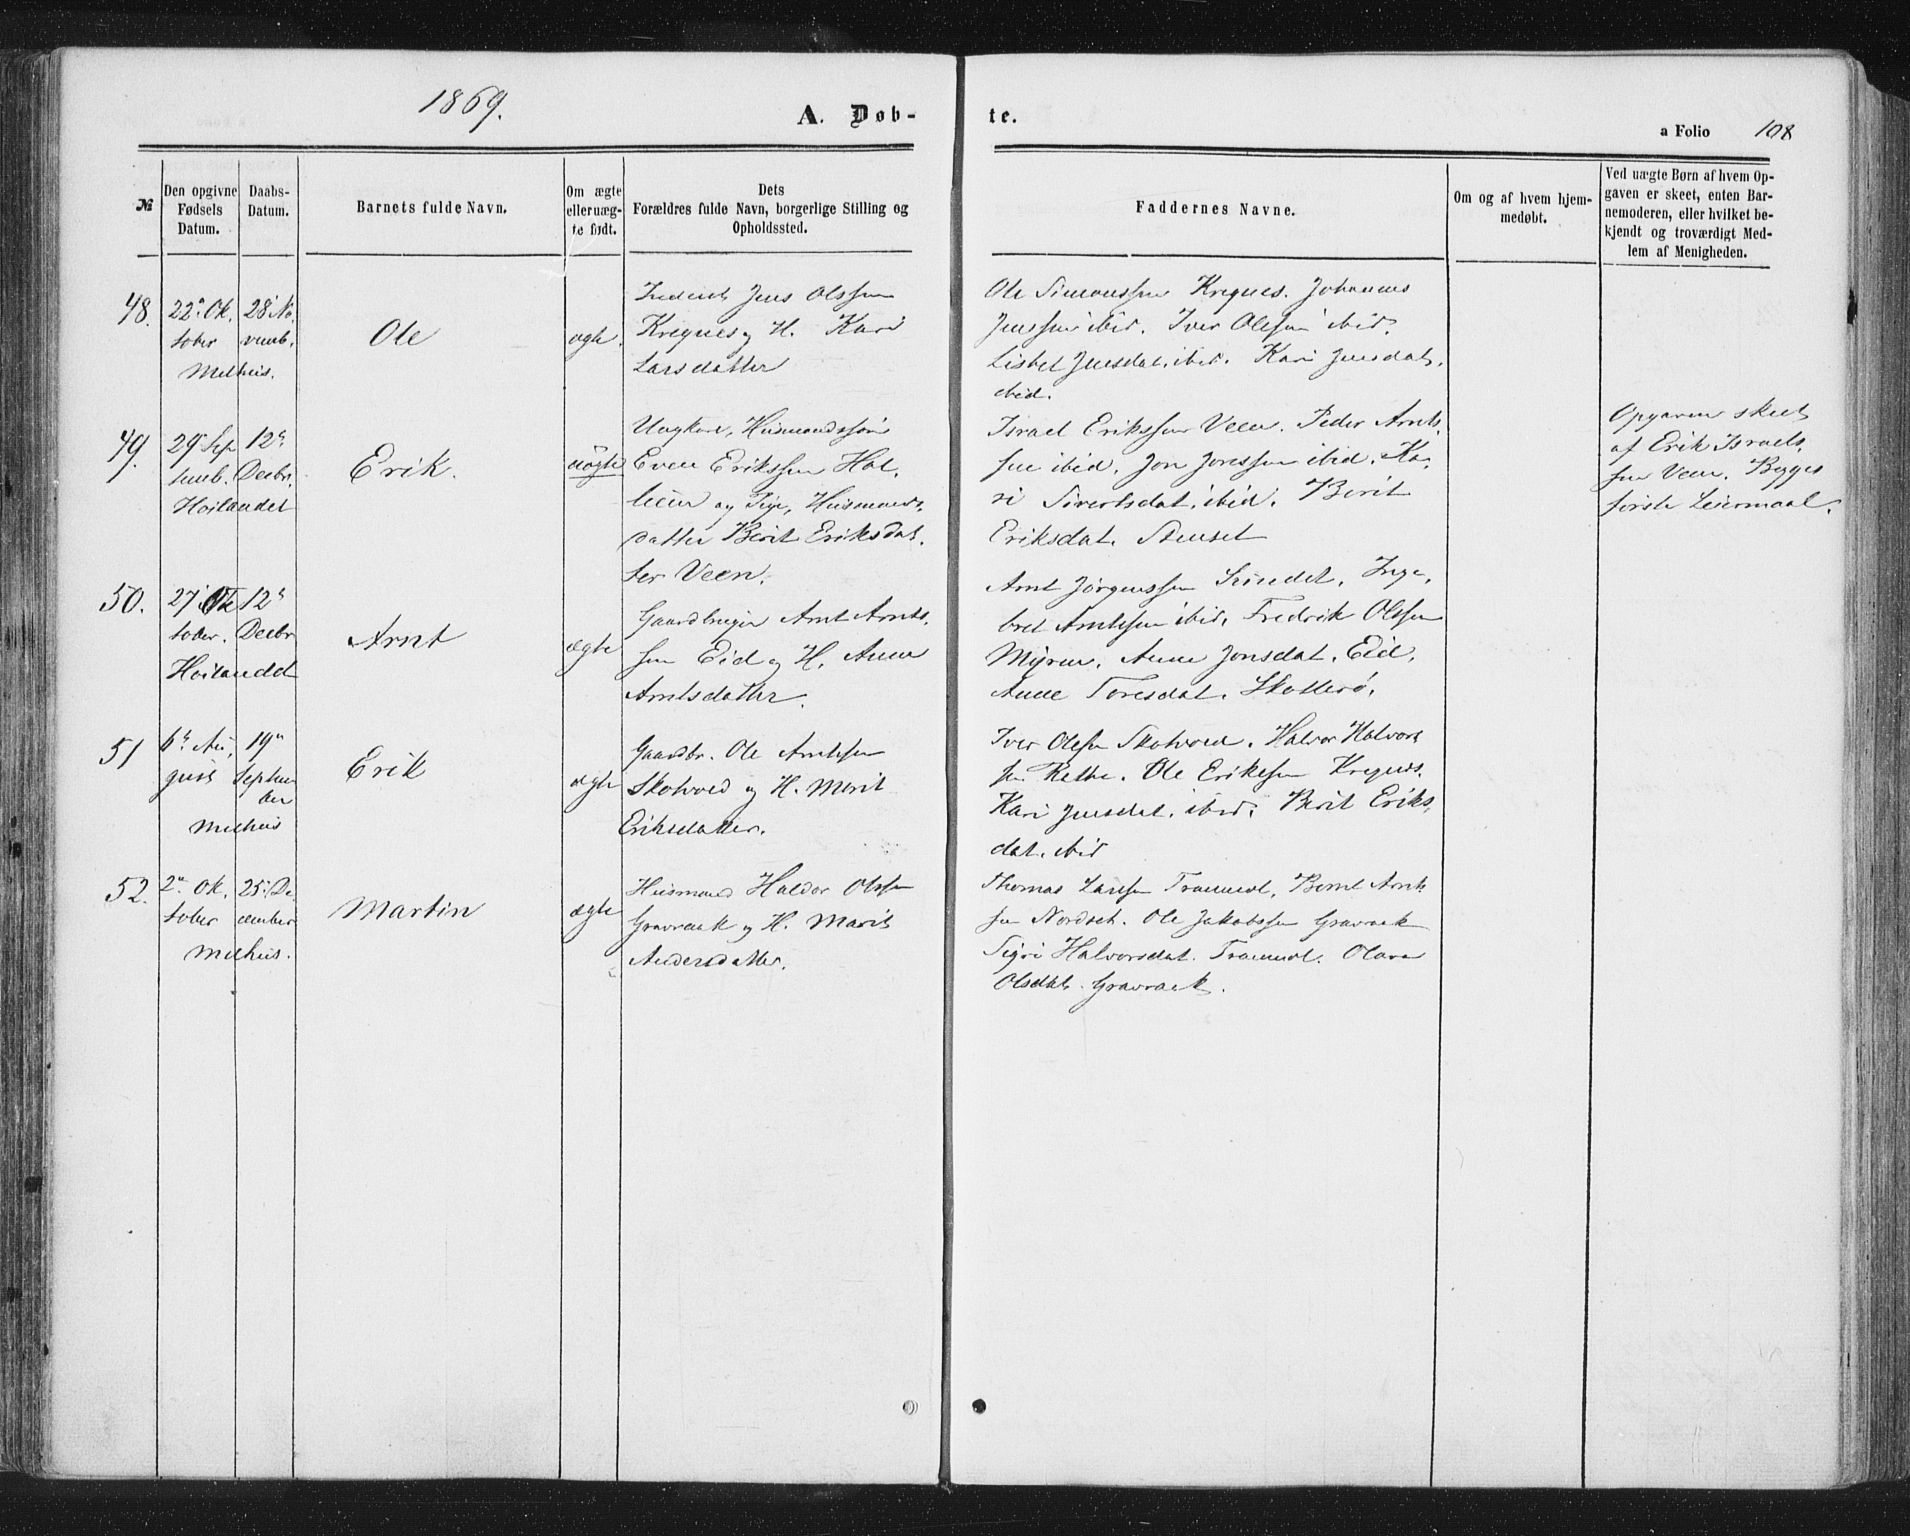 1869.
A. Døb-
te.
a Folio 108
№
Den opgivne
Fødsels
Datum.
Daabs-
Datum.
Barnets fulde Navn.
Om ægte
eller uæg-
te født.
Dets
Forældres fulde Navn, borgerlige Stilling og
Opholdssted.
Faddernes Navne.
Om og af hvem hjem-
medøbt.
Ved uægte Børn af hvem Op-
gaven er skeet, enten Bar-
nemoderen, eller hvilket be-
kjendt og troværdigt Med-
lem af Menigheden.
48.
22n Ok.
tober
28 No,
vemb.
Melhuus.
Ole
ægte.
Jens Olssen
Kregnes og H. Kari
Larsdatter
Ole Simonssen Kregnes. Johannes
Jenssen ibid. Iver Olessen ibid.
Lisbet Jensdat. ibid. Kari Jensdat.
ibid.
49.
29 Sep
temb.
12n
Decbr.
Hoilandet
Erik.
uægte
Ungkarl, Husmandssøn
Even Erikssen Hol,
leien og Pige, Husmands,
datter Berit Eriksdat,
ter Veen.
Israel Erikssen Veen. Peder Arnt,
sen ibid. Jon Jonssen ibid. Ka,
ri Sivertsdat. ibid. Berit
Eriksdat. Stenset
Opgaven skeet
af Erik Israels,
sen Veen. Begges
første Leiermaal.
50.
27 Ok
tober.
12n
Decbr
Hoilandet
Arnt
ægte
Gaardbruger Arnt Arnts,
sen Eid og H. Anne
Arntsdatter.
Arnt Jørgenssen Sundet, Inge,
bret Arntssen ibid. Fredrik Olssen
Myren. Anne Jonsdat. Eid.
Anne Toresdat. Skotterø.
51
6n Au,
gust
19n
Septem
ber
Melhuus
Erik
ægte
Gaardbr. Ole Arntssen
Skotvold og H. Merit
Eriksdatter.
Iver Olssen Skotvold. Halvor Halvors
sen Rethe. Ole Erikssen Kregnes.
Kari Jensdat. ibid. Berit Eriks,
dat. ibid
52.
2n Ok.
tober
25 De
cember
Melhuus.
Martin
ægte
Husmand Haldor Olssen
Gravraak og H. Marit
Andersdatter.
Thomas Larssen Bernt Arnt
sen Nordset. Ole Jakobssen Gravraak
Sigri Halvorsdat. Olava
Olsdat. Gravraak.